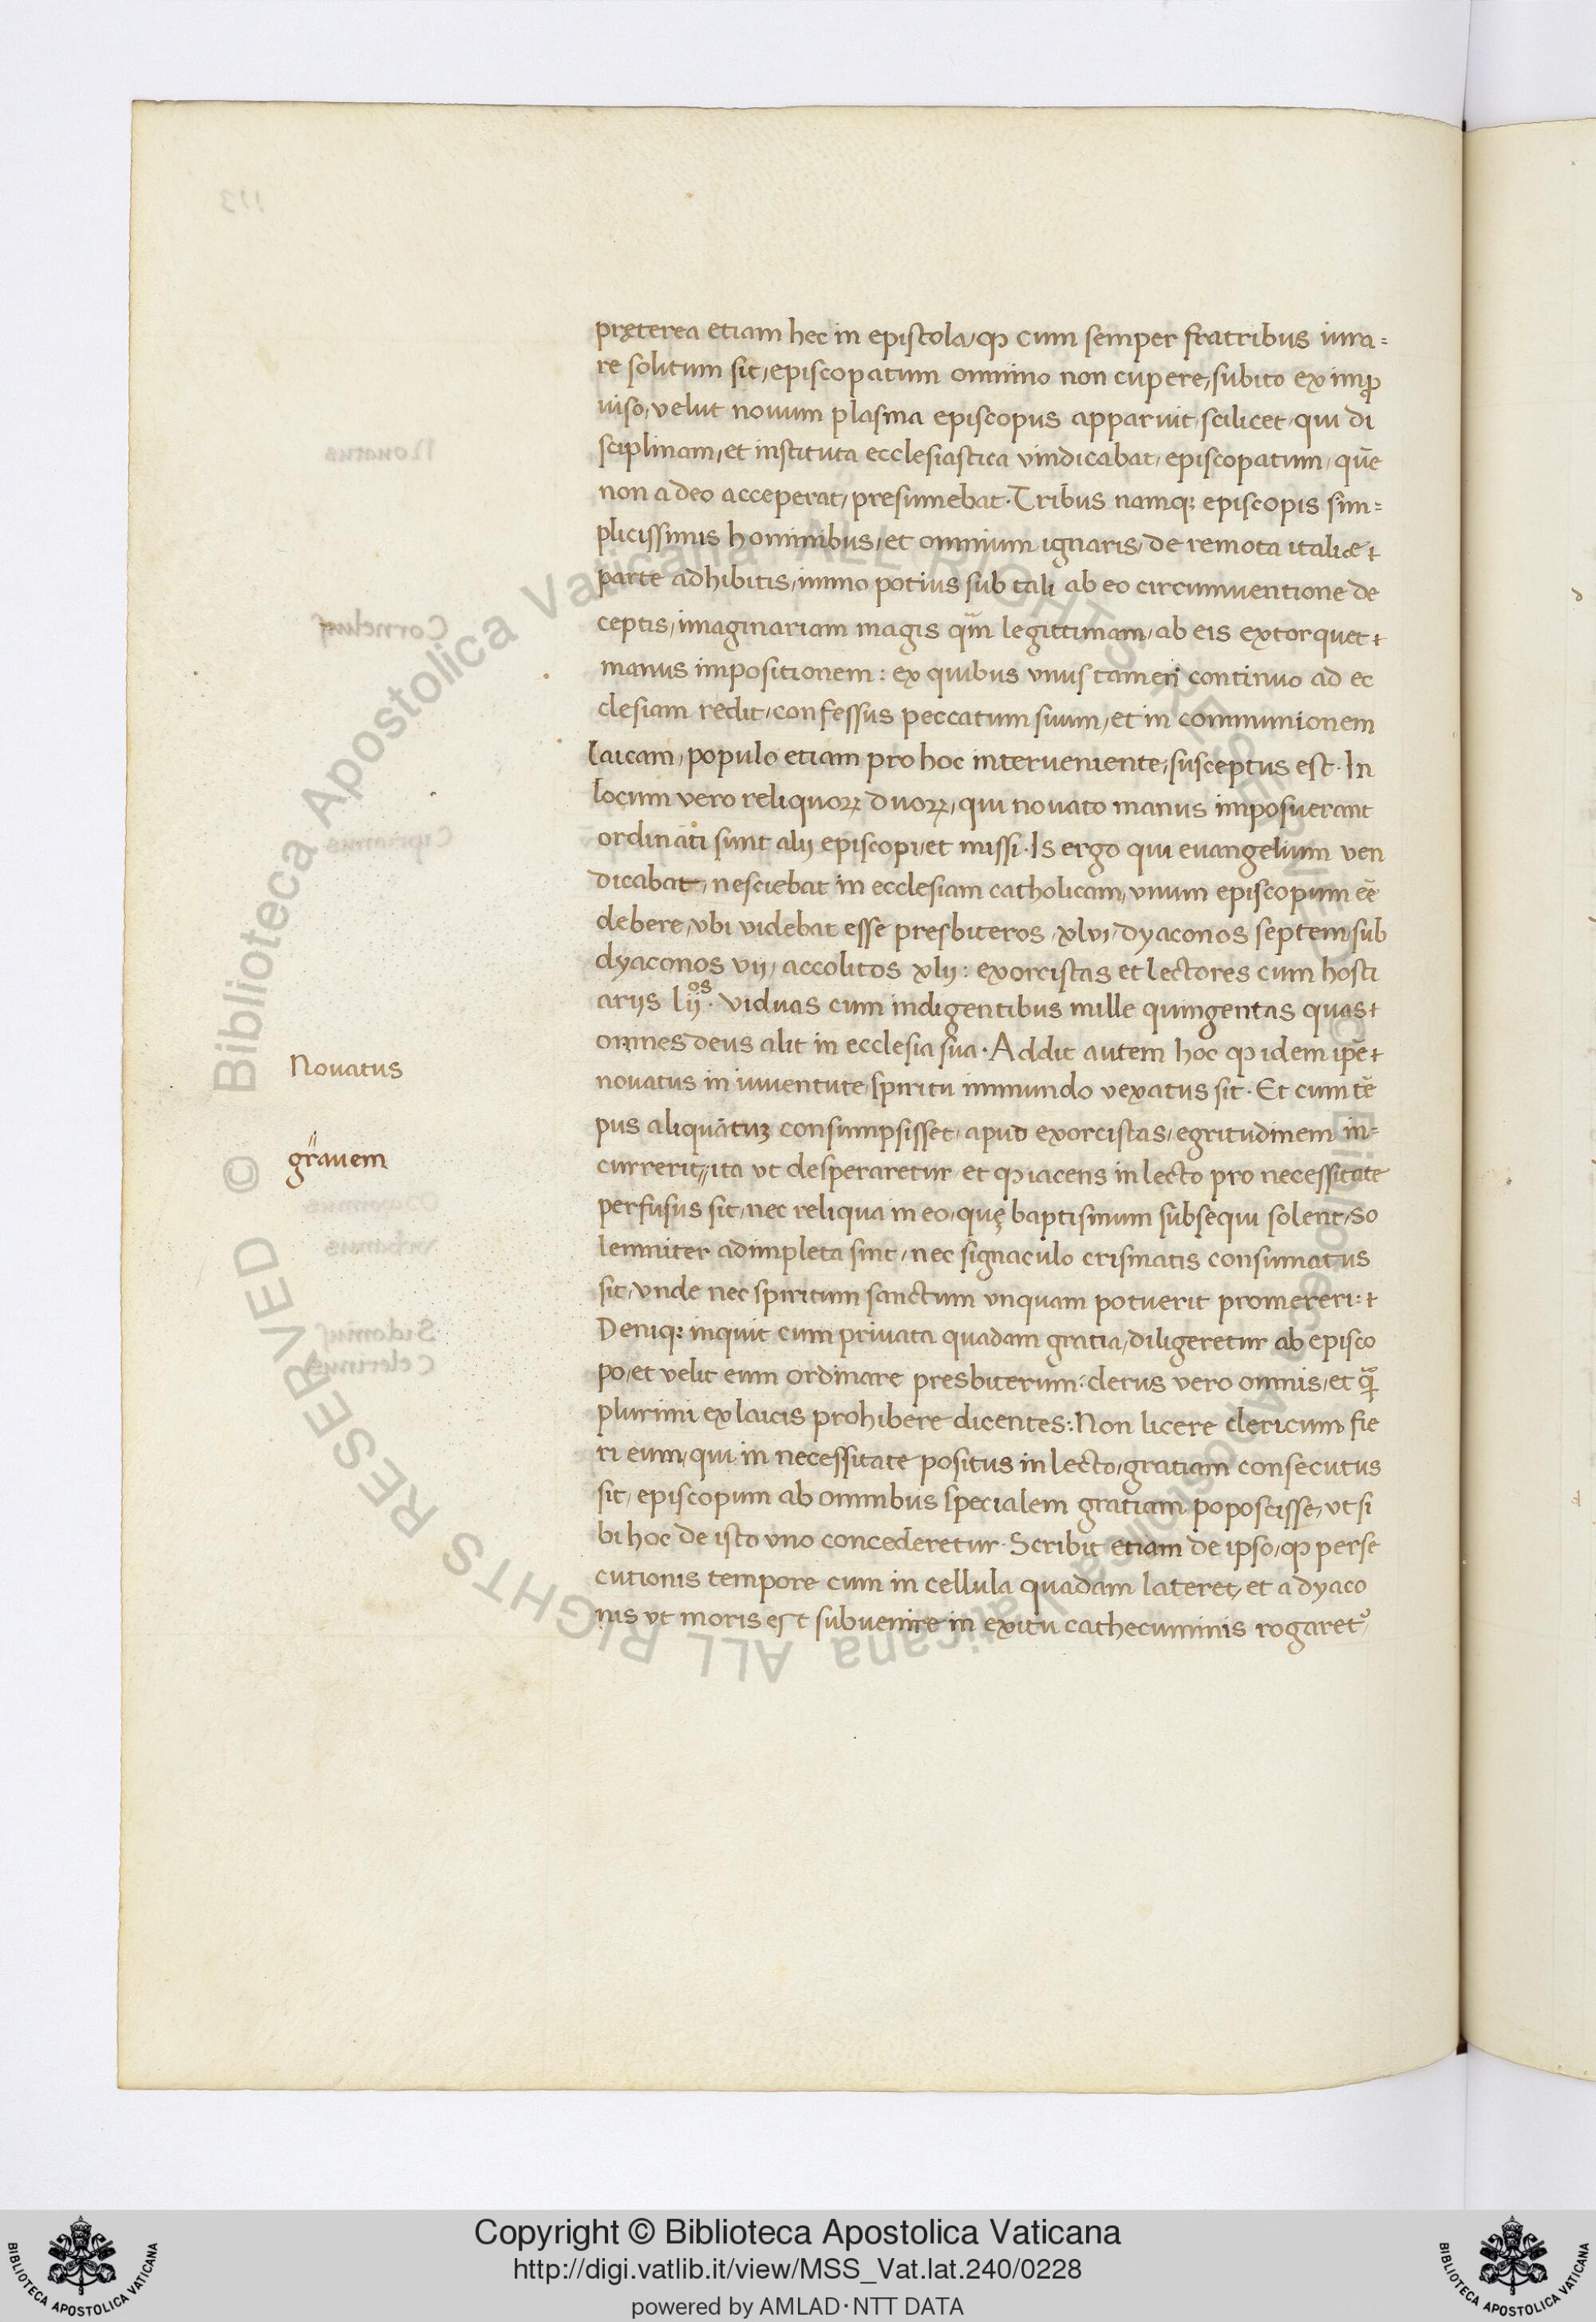 pręterea etiam hec in epistola / ꝙ cum semper fratribus iura=
re solitum sit / episcopatum omnino non cupere / subito ex imꝓ
uiso / velut nouum plasma episcopus apparuit / scilicet / qui di
sciplinam / et instituta ecclesiastica vindicabat / episcopatum / quē
non a deo acceperat / presumebat · Tribus namqꝫ episcopis sim=
plicissimis hominibus / et omnium ignaris / de remota italiae
parte adhibitis / immo potius sub tali ab eo circumuentione de
ceptis / imaginariam magis qm̄ legittimam / ab eis extorquet
manus impositionem : ex quibus vnus tamen continuo ad ec
clesiam redit / confessus peccatum suum / et in communionem
laicam / populo etiam pro hoc interueniente / susceptus est · In
locum vero reliquoꝝ duoꝝ / qui nouato manus imposuerant
ordinati sunt alij episcopi / et missi · Is ergo qui euangelium ven
dicabat / nesciebat in ecclesiam catholicam / vnum episcopum eē
debere / vbi videbat esse presbiteros / xlvi / dyaconos septem / sub
dyaconos vij / accolitos xlij : exorcistas et lectores cum hosti
arijs lijos · viduas cum indigentibus mille quingentas quas
omnes deus alit in ecclesia sua · Addit autem hoc ꝙ idem ipē
nouatus in iuuentute / spiritu immundo vexatus sit · Et cum tē
pus aliquātuꝫ consumpsisset / apud exorcistas / egritudinem in=
currerit // ita vt desperaretur et ꝙ iacens in lecto pro necessitate
perfusus sit / nec reliqua in eo / quę baptismum subsequi solent / so
lemniter adimpleta sint / nec signaculo crismatis consumatus
sit / vnde nec spiritum sanctum vnquam potuerit promereri :
Deniqꝫ inquit cum priuata quadam gratia / diligeretur ab episco
po / et velit eum ordinare presbiterum : clerus vero omnis / et
plurimi ex laicis prohibere dicentes : Non licere clericum fie
ri eum / qui in necessitate positus in lecto / gratiam consecutus
sit / episcopum ab omnibus specialem gratiam poposcisse / vt si
bi hoc de isto vno concederetur · Scribit etiam de ipso / ꝙ perse
cutionis tempore cum in cellula quadam lateret / et a dyaco
nis vt moris est subuenire in exitu cathecuminis rogaret᷒ /
Nouatus
// grauem
113
Nouatus
Cornelius
Ciprianus
vrbanus
Sidonius
Celerinus
© Biblioteca Apostolica Vaticana ALL RIGHTS RESERVED
© Biblioteca Apostolica Vaticana ALL RIGHTS RESERVED
Copyright © Biblioteca Apostolica Vaticana
http://digi.vatlib.it/view/MSS_Vat.lat.240/0228
powered by AMLAD·NTT DATA
BIBLIOTECA APOSTOLICA VATICANA
BIBLIOTECA APOSTOLICA VATICANA